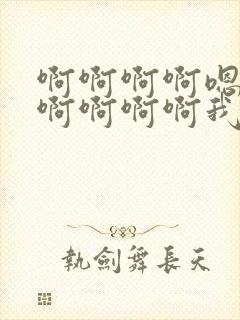 啊啊啊啊嗯
啊啊啊啊我
執劍舞長天